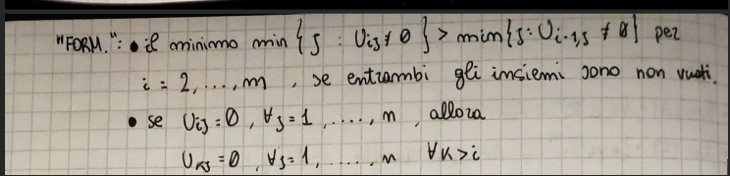 "FORM.": • il minimo min { j : Uij ≠ 0 } > min{ j : Ui-1,j ≠ 0 } per
i = 2, ..., m , se entrambi gli insiemi sono non vuoti.
• se Uij = 0 , ∀j = 1 , ....., n , allora
Ukj = 0 , ∀j = 1, ....., n ∀k > i